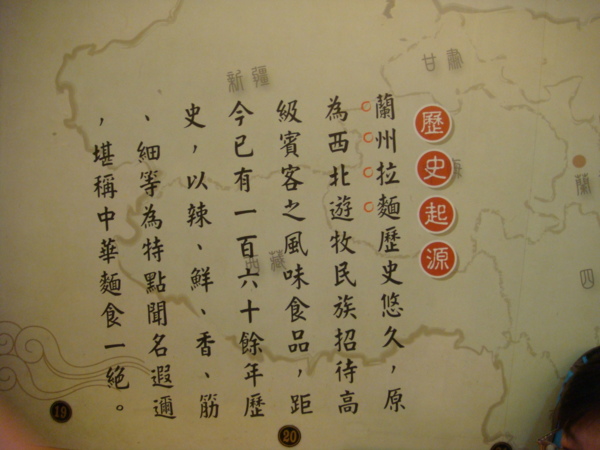 歷史起源
蘭州拉麵歷史悠久，原
為西北遊牧民族招待高
級賓客之風味食品，距
今已有一百六十餘年歷
史，以辣、鮮、香、筋
、細等為特點聞名遐邇
，堪稱中華麵食一絕。
新疆
甘肅
西藏
海
蘭
四
19
20